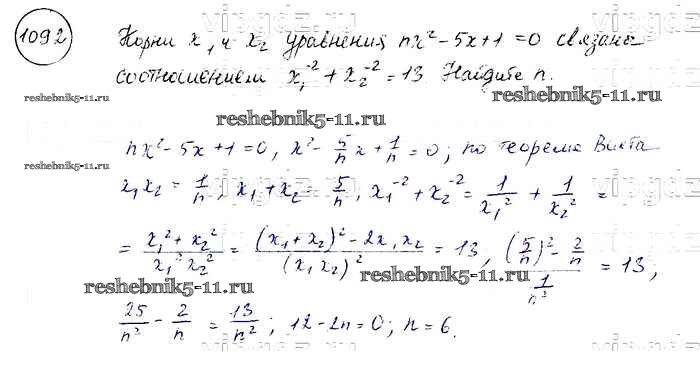 1092 Корни x₁ и x₂ уравнения nx² - 5x + 1 = 0 связаны
соотношением x₁⁻² + x₂⁻² = 13 Найдите n.
reshebnik5-11.ru reshebnik5-11.ru
reshebnik5-11.ru
nx² - 5x + 1 = 0, x² - 5/n x + 1/n = 0; по теореме Виета
x₁x₂ = 1/n, x₁ + x₂ = 5/n, x₁⁻² + x₂⁻² = 1/x₁² + 1/x₂² =
= (x₁² + x₂²)/(x₁²x₂²) = ((x₁ + x₂)² - 2x₁x₂)/(x₁x₂)² = 13, ((5/n)² - 2/n)/(1/n²) = 13;
reshebnik5-11.ru reshebnik5-11.ru
25/n² - 2/n = 13/n²; 12 - 2n = 0; n = 6.